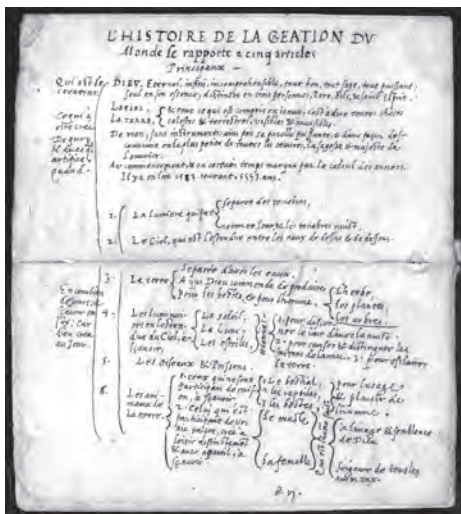 L'HISTOIRE DE LA CREATION DV
Monde se rapporte a cinq articles
Principaux —
Qui est le createur.
DIEV, Eternel, infini, incomprehensible, tout bon, tout sage, tout puissant;
seul en son essence, distincte en trois personnes, Pere, Fils, & saint Esprit.
Ce qui a esté cree
Le ciel, La terre,
& tout ce qui est compris en iceux; c'est a dire toutes choses
celestes & terrestres, visibles & invisibles.
De rien, sans instruments; ains par sa parolle puissante,
la plus petite de toutes les œuvres, la sagesse & majesté de
l'ouvrier.
quand.
Au commencement, & en certain temps marqué par le calcul des annees.
Il y a en l'an 1583 courant, 5551 ans.
1. La lumiere qui fut
separee des tenebres,
les tenebres nuict.
2. Le Ciel, qui est l'estendue entre les eaux de dessus & de dessous.
3. La terre
Separee d'avec les eaux.
A qui Dieu commende de produire
pour les bestes, & pour l'homme.
L'herbe
les plantes
les arbres.
En combien de jours
4. Les luminaires en l'estendue du Ciel, a sçavoir;
Le soleil,
La Lune
Les estoiles
1. pour discerner le jour d'avec la nuict
2. pour & distinguer les
3. Pour esclairer
la terre.
5. Les Oiseaux & Poissons.
6. Les animaux de la terre.
1. ceux qui ne sont participans de raison, a sçavoir
1. Le bestial,
2. les reptiles,
3. les bestes
pour l'usage
& plaisir de
l'homme.
2. Celui qui est participant de raison, cree a
loisir distinctement
& avec appareil; a
sçavoir
Le masle
La femelle
a l'image & semblance
de Dieu
Seigneur de tous les
animaux.